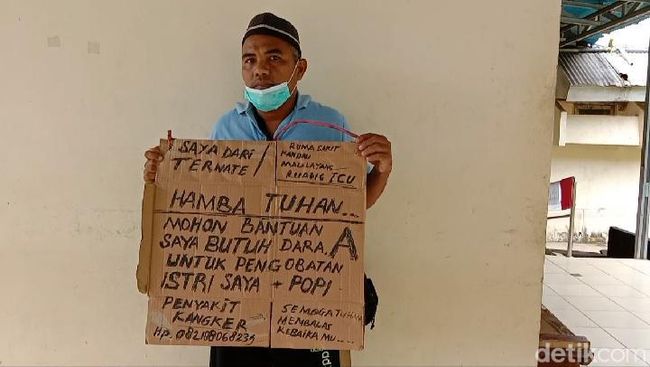 SAYA DARI
TERNATE
RUMA SAKIT
KANDOU
MALALAYANG
RUANG ICU
HAMBA TUHAN...
MOHON BANTUAN
SAYA BUTUH DARA, A
UNTUK PENGOBATAN
ISTRI SAYA + POPI
PENYAKIT
KANGKER
HP. 082188068234
SEMOGA TUHAN
MEMBALAS
KEBAIKA MU...
detikcom